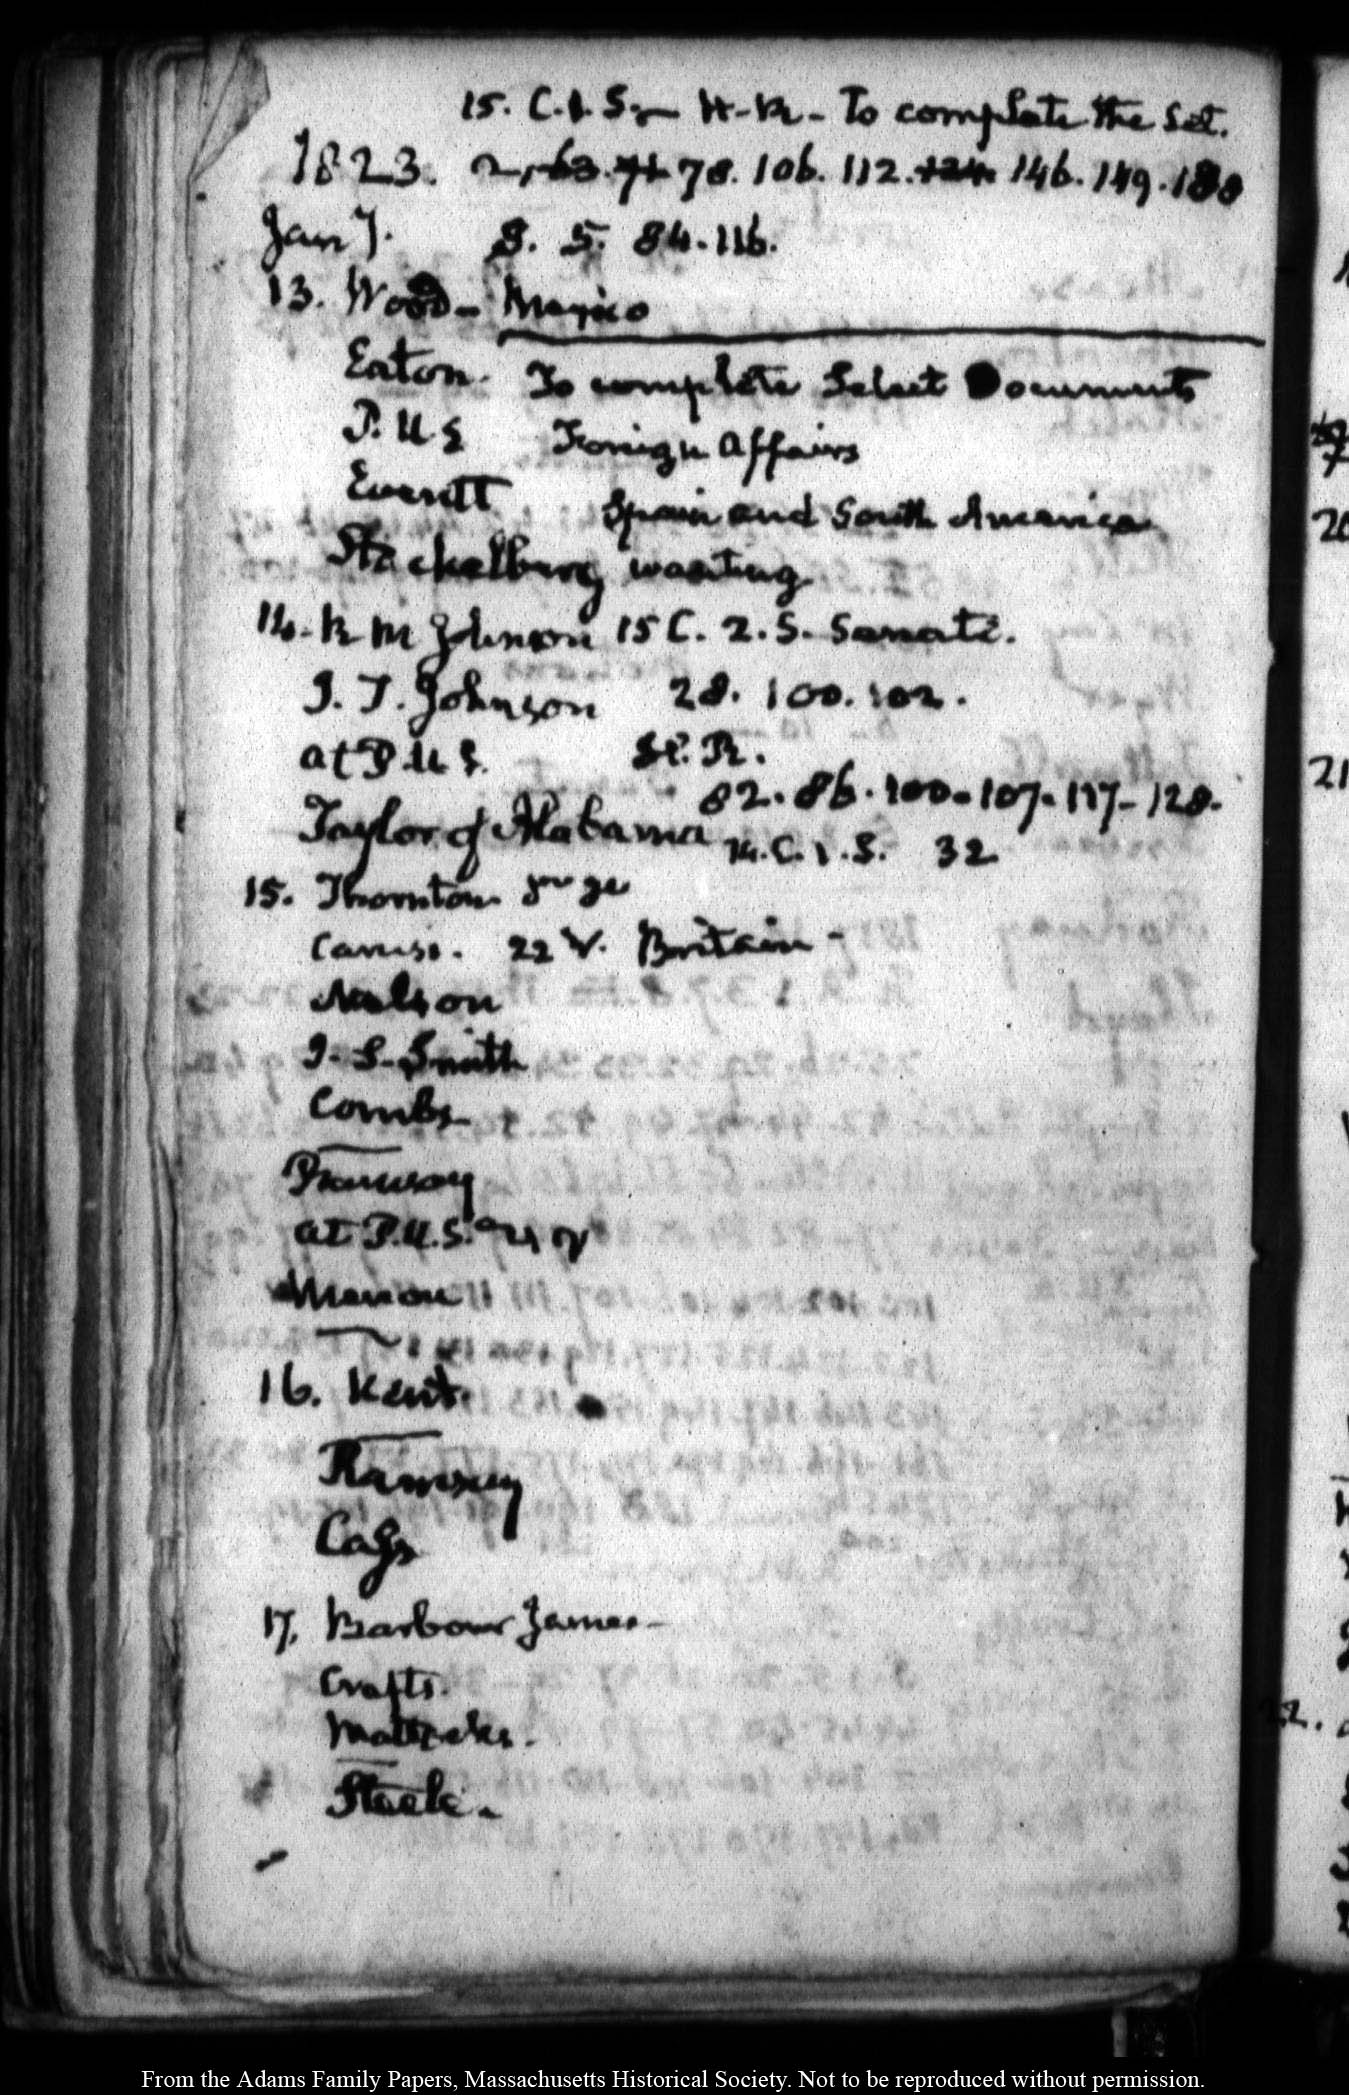 15. C. 1. S. — H. R. - To complete the Set.
1823. 2, 63. 71. 78. 106. 112. 124. 146. 149. 188
Jany. S. 5. 84. 116.
13. Wood - Mexico
Eaton. To complete Select Documents
P. U S Foreign Affairs
Everett Spain and South America
Stackelberg wanting
14. R M Johnson 15 C. 2. S. Senate.
J. T. Johnson 28. 100. 102.
at P. U S. H. R.
82. 86. 100. 107. 117 - 128.
Taylor of Alabama 14. C. 1. S. 32
15. Thornton
22 V. Britain -
Nelson
J. S. Smith
Combs
at P. U. S.
16. Kent.
Ramsey
17. Barbour James -
Crafts.
Mattocks.
Steele.
20
21
22.
From the Adams Family Papers, Massachusetts Historical Society. Not to be reproduced without permission.